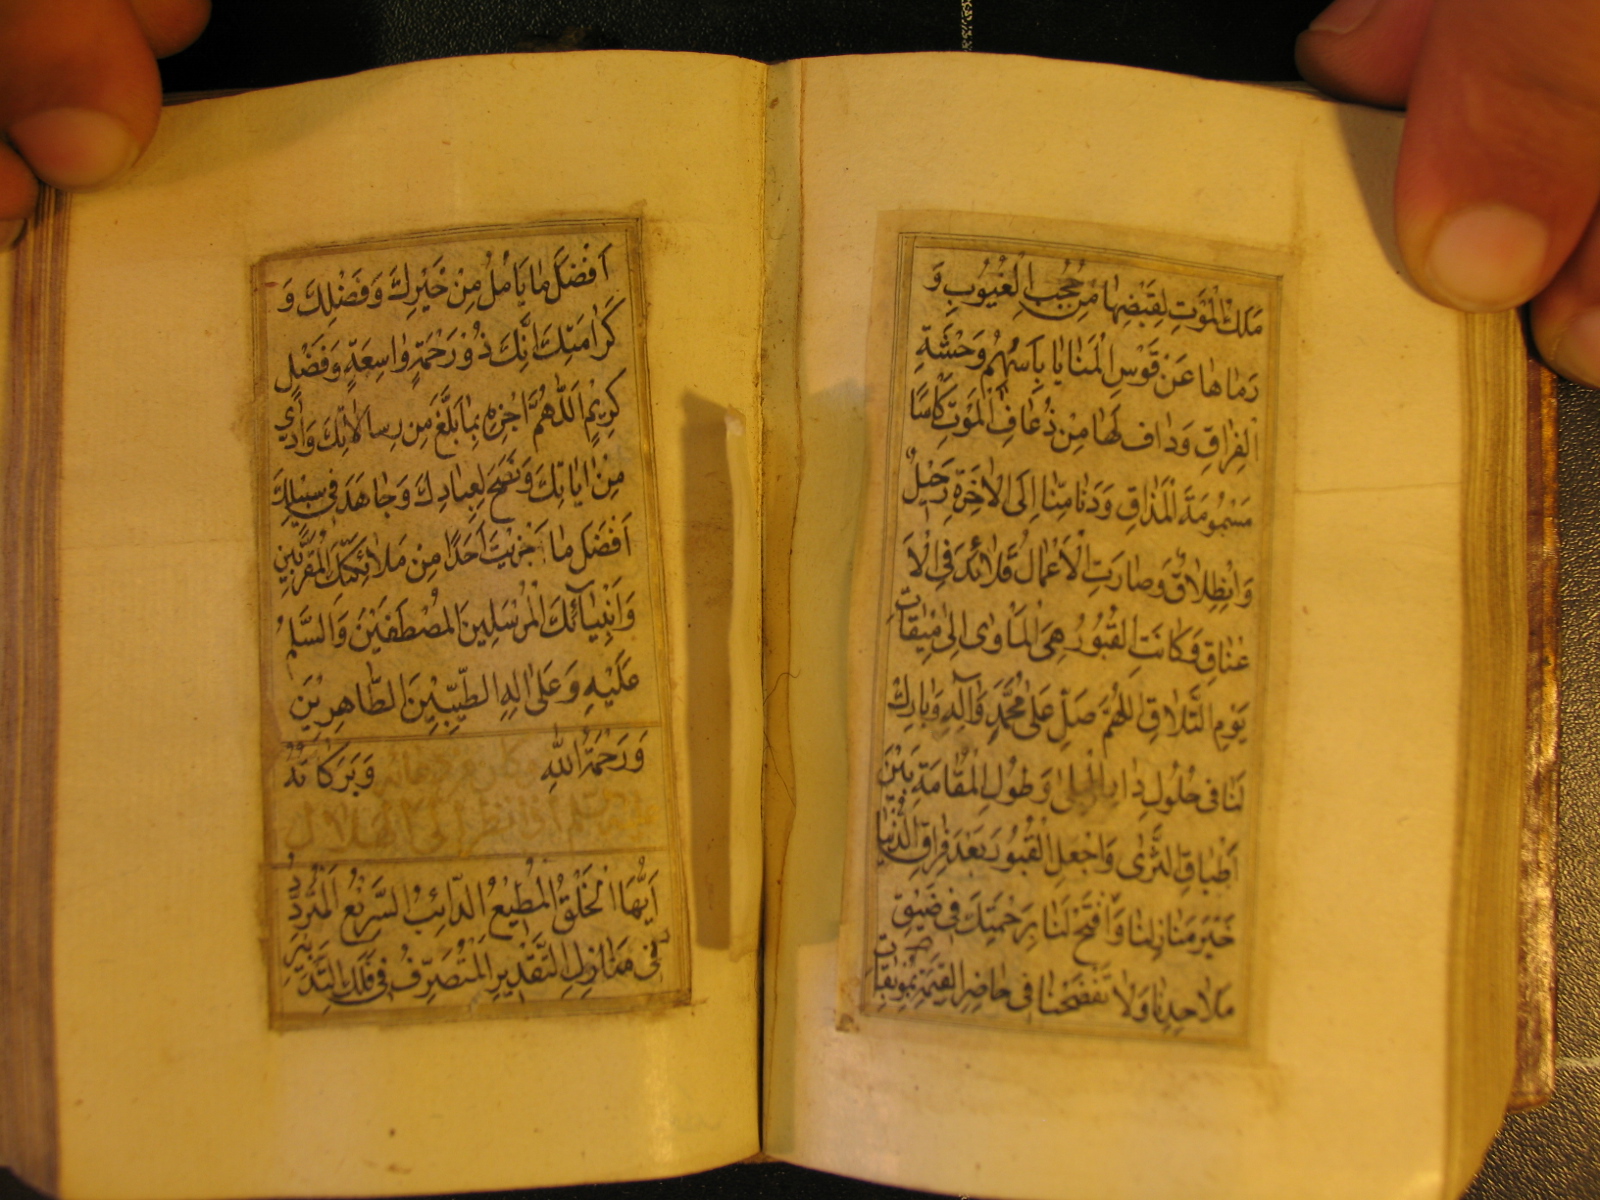 مَلَكُ الْمَوْتِ لِقَبْضِهَا مِنْ حُجُبِ الْغُيُوبِ وَ
رَمَاهَا عَنْ قَوْسِ الْمَنَايَا بِأَسْهُمِ وَحْشَةِ
الْفِرَاقِ وَدَافَ لَهَا مِنْ ذُعَافِ الْمَوْتِ كَأْسًا
مَسْمُومَةَ الْمَذَاقِ وَدَنَا مِنَّا اِلَى الْاٰخِرَةِ رَحِيلٌ
وَانْطِلَاقٌ وَصَارَتِ الْاَعْمَالُ قَلَائِدَ فِى الْاَ
عْنَاقِ وَكَانَتِ الْقُبُورُ هِىَ الْمَأْوٰى اِلٰى مِيقَاتِ
يَوْمِ التَّلَاقِ اَللّٰهُمَّ صَلِّ عَلٰى مُحَمَّدٍ وَاٰلِهِ وَبَارِكْ
لَنَا فِى حُلُولِ دَارِ الْبِلٰى وَطُولِ الْمُقَامَةِ بَيْنَ
اَطْبَاقِ الثَّرٰى وَاجْعَلِ الْقُبُورَ بَعْدَ فِرَاقِ الدُّنْيَا
خَيْرَ مَنَازِلِنَا وَافْسَحْ لَنَا بِرَحْمَتِكَ فِى ضِيقِ
مَلَاحِدِنَا وَلَا تَفْضَحْنَا فِى حَاضِرِ الْقِيٰمَةِ بِمُوبِقَاتِ
اَفْضَلَ مَا يَأْمُلُ مِنْ خَيْرِكَ وَفَضْلِكَ وَ
كَرَامَتِكَ اِنَّكَ ذُو رَحْمَةٍ وَاسِعَةٍ وَفَضْلٍ
كَرِيمٍ اَللّٰهُمَّ اجْزِهِ بِمَا بَلَّغَ مِنْ رِسَالَاتِكَ وَاَدّٰي
مِنْ اٰيَاتِكَ وَنَصَحَ لِعِبَادِكَ وَجَاهَدَ فِى سَبِيلِكَ
اَفْضَلَ مَا جَزَيْتَ اَحَدًا مِنْ مَلَائِكَتِكَ الْمُقَرَّبِينَ
وَاَنْبِيَآئِكَ الْمُرْسَلِينَ الْمُصْطَفَيْنَ وَالسَّلٰمُ
عَلَيْهِ وَعَلٰى اٰلِهِ الطَّيِّبِينَ الطَّاهِرِينَ
وَرَحْمَةُ اللّٰهِ وكان من دعائه وَبَرَكَاتُهُ
اذا نظر الى الهلال
اَيُّهَا الْخَلْقُ الْمُطِيعُ الدَّائِبُ السَّرِيعُ الْمُتَرَدِّدُ
فِى مَنَازِلِ التَّقْدِيرِ الْمُتَصَرِّفُ فِى فَلَكِ التَّدْبِيرِ